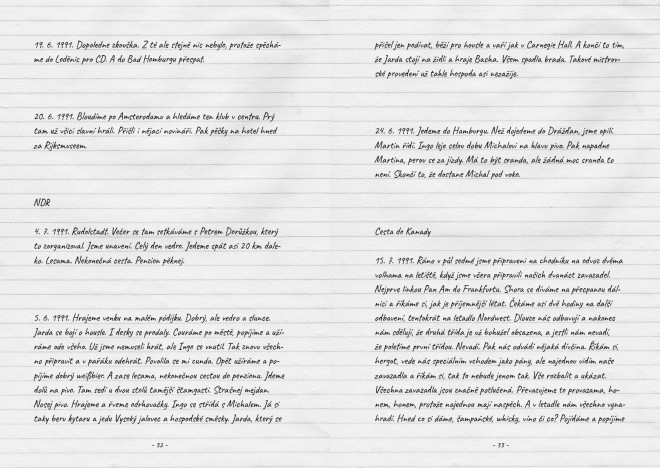 19. 6. 1991. Dopoledne zkouška. Z té ale stejně nic nebylo, protože spěchá-
me do Loděnic pro CD. A do Bad Homburgu přespat.
20. 6. 1991. Bloudíme po Amsterodamu a hledáme ten klub v centru. Prý
tam už všici slavní hráli. Přišli i nějací novináři. Pak pěšky na hotel hned
za Rijksmuseem.
NDR
4. 7. 1991. Rudolstadt. Večer se tam setkáváme s Petrem Dorůžkou, který
to zorganizoval. Jsme unavení. Celý den vedro. Jedeme spát asi 20 km dale-
ko. Lesama. Nekonečná cesta. Penzion pěknej.
5. 6. 1991. Hrajeme venku na malém pódijku. Dobrý, ale vedro a slunce.
Jarda se bojí o housle. I desky se prodaly. Couráme po městě, popíjíme a uží-
ráme ode všeho. Už jsme nemuseli hrát, ale Ingo se vnutil. Tak znovu všech-
no připravit a v pařáku odehrát. Povolila se mi cunda. Opět užíráme a po-
píjíme dobrý weißbier. A zase lesama, nekonečnou cestou do penzionu. Jdeme
dolů na pivo. Tam sedí u dvou stolů tamější štamgasti. Strašnej mejdan.
Nosej pivo. Hrajeme a řveme odrhovačky. Ingo se střídá s Michalem. Já si
taky beru kytaru a jedu Vysoký jalovec a hospodské směsky. Jarda, který se
- 32 -
přišel jen podívat, běží pro housle a vaří jak v Carnegie Hall. A končí to tím,
že Jarda stojí na židli a hraje Bacha. Všem spadla brada. Takové mistrov-
ské provedení už tahle hospoda asi nezažije.
24. 6. 1991. Jedeme do Hamburgu. Než dojedeme do Drážďan, jsme opilí.
Martin řídí. Ingo leje celou dobu Michalovi na hlavu pivo. Pak napadne
Martina, perou se za jízdy. Má to být sranda, ale žádná moc sranda to
není. Skončí to, že dostane Michal pod voko.
Cesta do Kanady
15. 7. 1991. Ráno v půl sedmé jsme připraveni na chodníku na odvoz dvěma
volhama na letiště, když jsme včera připravili našich dvanáct zavazadel.
Nejprve linkou Pan Am do Frankfurtu. Shora se díváme na přecpanou dál-
nici a říkáme si, jak je příjemnější létat. Čekáme asi dvě hodiny na další
odbavení, tentokrát na letadlo Nordwest. Dlouze nás odbavují a nakonec
nám sdělují, že druhá třída je už bohužel obsazena, a jestli nám nevadí,
že poletíme první třídou. Nevadí. Pak nás odvádí nějaká dívčina. Říkám si,
hergot, vede nás speciálním vchodem jako pány, ale najednou vidím naše
zavazadla a říkám si, tak to nebude jenom tak. Vše rozbalit a ukázat.
Všechna zavazadla jsou značně potlučená. Převazujeme to provazama, ho-
nem, honem, protože najednou mají naspěch. A v letadle nám všechno vyna-
hradí. Hned co si dáme, šampaňské, whisky, víno či co? Pojídáme a popíjíme
- 33 -